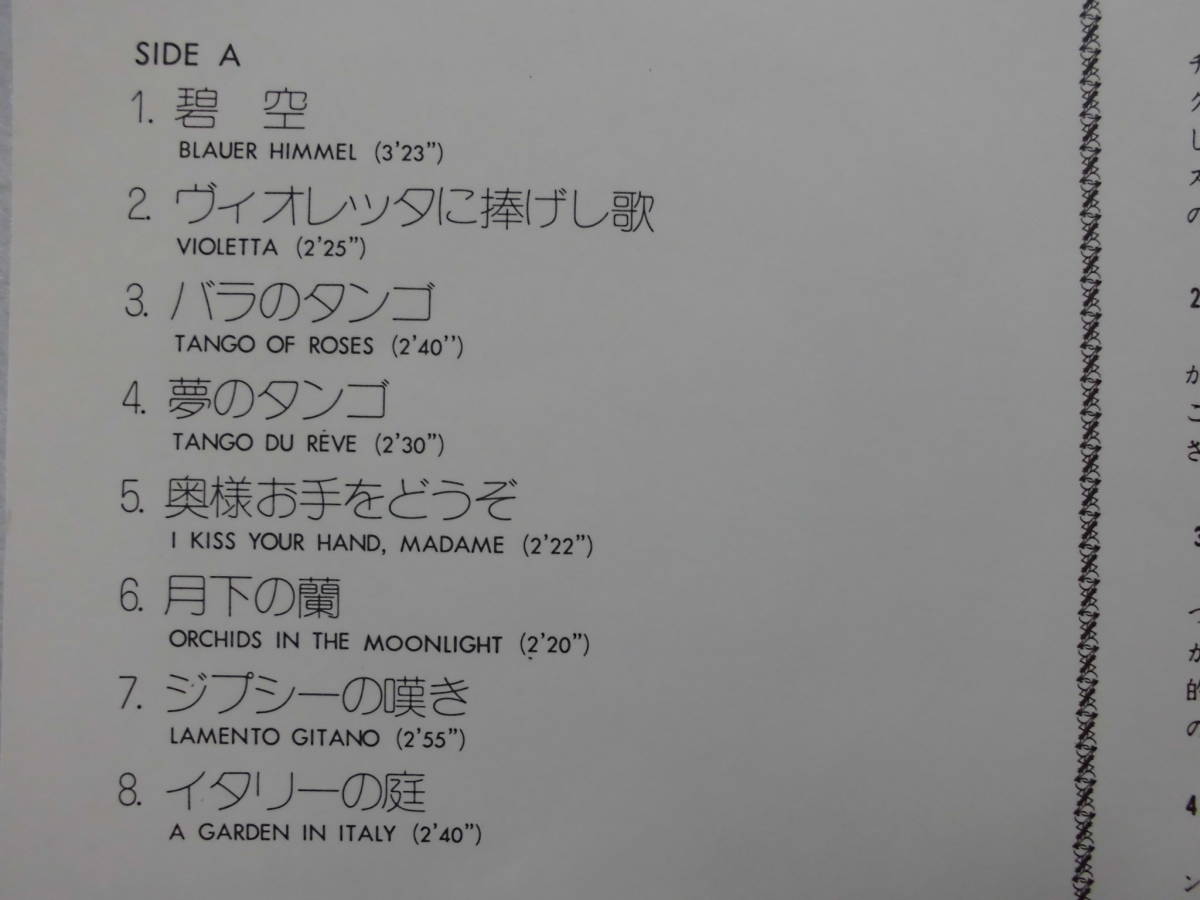 SIDE A
1. 碧 空
BLAUER HIMMEL (3'23")
2. ヴィオレッタに捧げし歌
VIOLETTA (2'25")
3. バラのタンゴ
TANGO OF ROSES (2'40'')
4. 夢のタンゴ
TANGO DU RÊVE (2'30")
5. 奥様お手をどうぞ
I KISS YOUR HAND, MADAME (2'22")
6. 月下の蘭
ORCHIDS IN THE MOONLIGHT (2'20")
7. ジプシーの嘆き
LAMENTO GITANO (2'55")
8. イタリーの庭
A GARDEN IN ITALY (2'40")
し
の
2
か
こ
さ
つ
が
的
の
4
ン